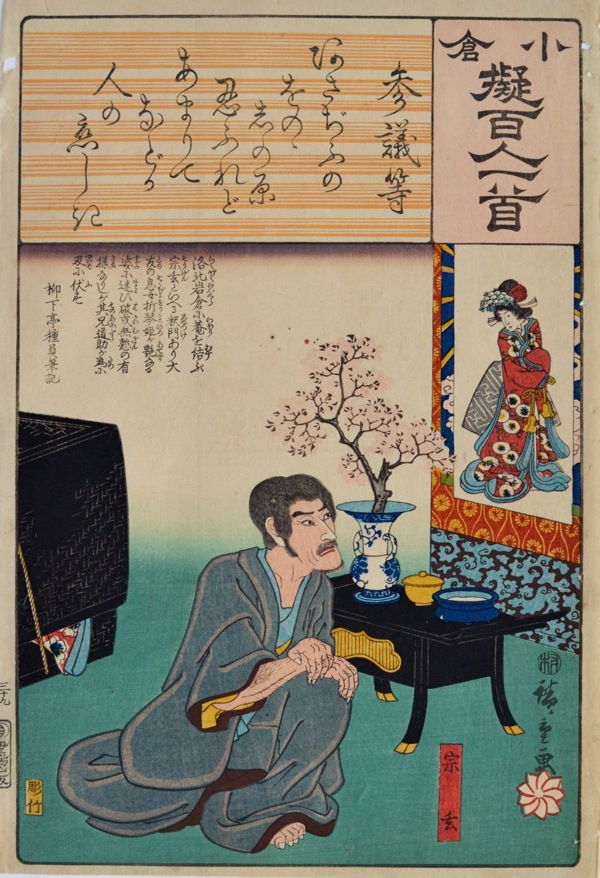 小倉
擬百人一首
参議等
あさぢふの
をのゝ
志の原
忍ふれど
あまりて
などか
人の
恋しき
洛北岩倉に菴を結ぶ
宗玄といへる釈門あり大
友の息女折琴姫が艶なる
姿に迷ひ破戒無慙の有
様なりしが其兄道助が為に
刃に伏す
柳下亭種員筆記
宗玄
廣重画
彫竹